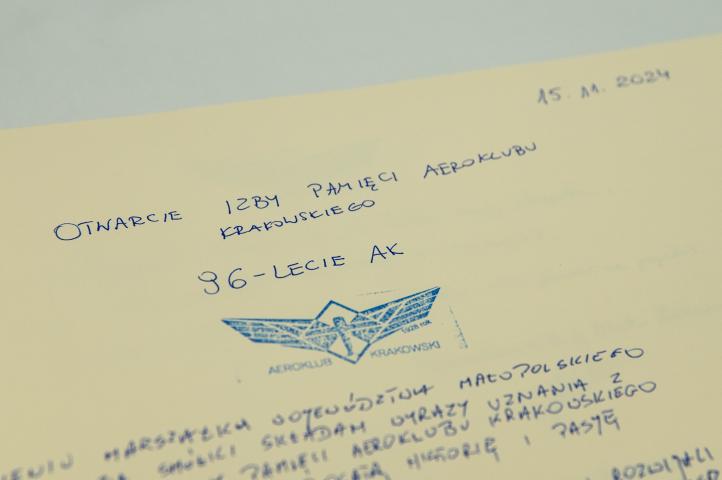 15. 11. 2024
OTWARCIE IZBY PAMIĘCI AEROKLUBU
KRAKOWSKIEGO
96-LECIE AK
1928 rok
AEROKLUB KRAKOWSKI
MARSZAŁKA WOJEWÓDZTWA MAŁOPOLSKIEGO
SKŁADAM WYRAZY UZNANIA Z
PAMIĘCI AEROKLUBU KRAKOWSKIEGO
HISTORIĘ I PASYĘ
ROZWIJALI